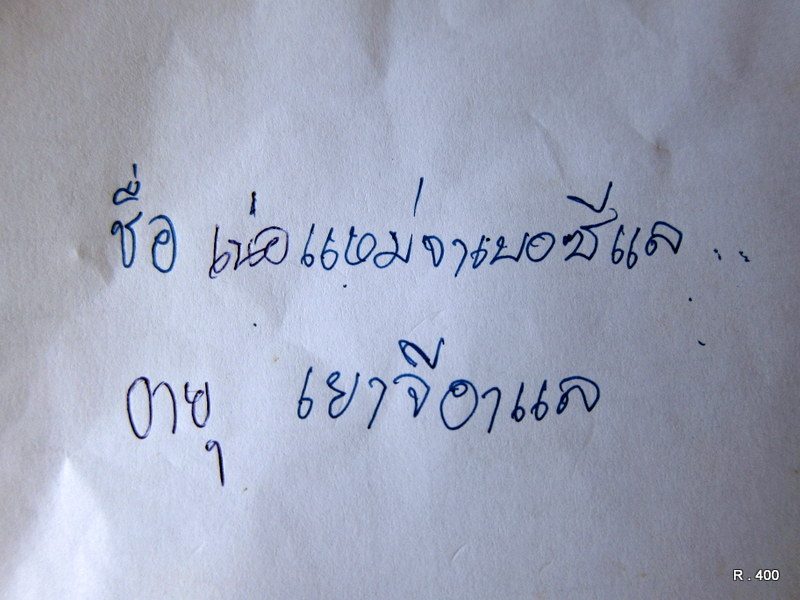 ชื่อ เน่อแหม่จาเบอซีแล ..
อายุ เยาจีอาแล
R . 400